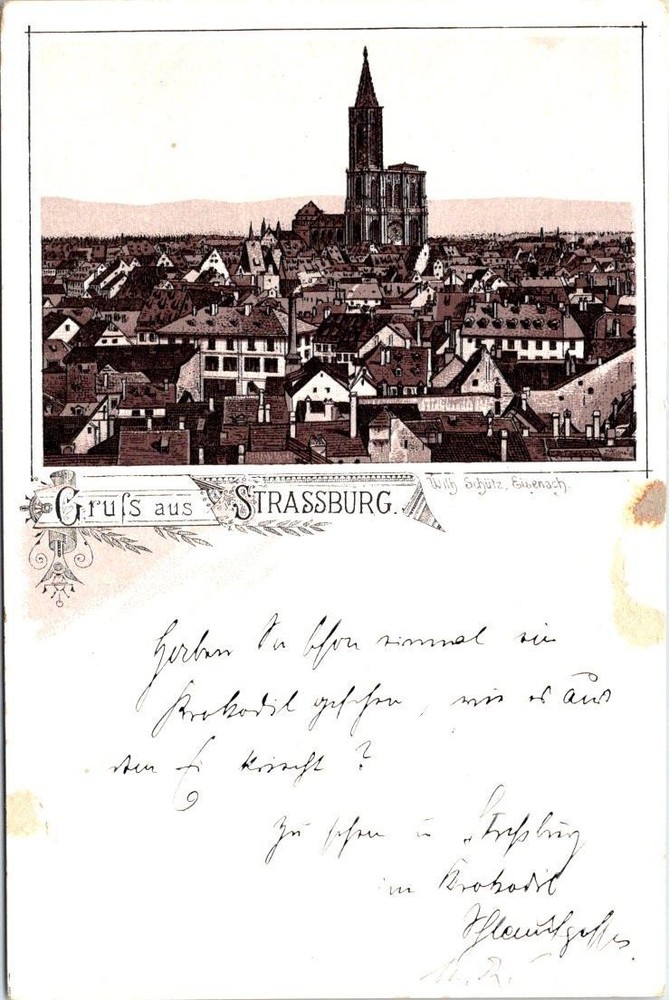 Gruſs aus STRASSBURG.
Wilh Schütz, Eisenach.
Haben Sie schon einmal ein
Krokodil gesehen, wie es aus
dem Ei kriecht?
Zu sehen in Straßburg
im Krokodil